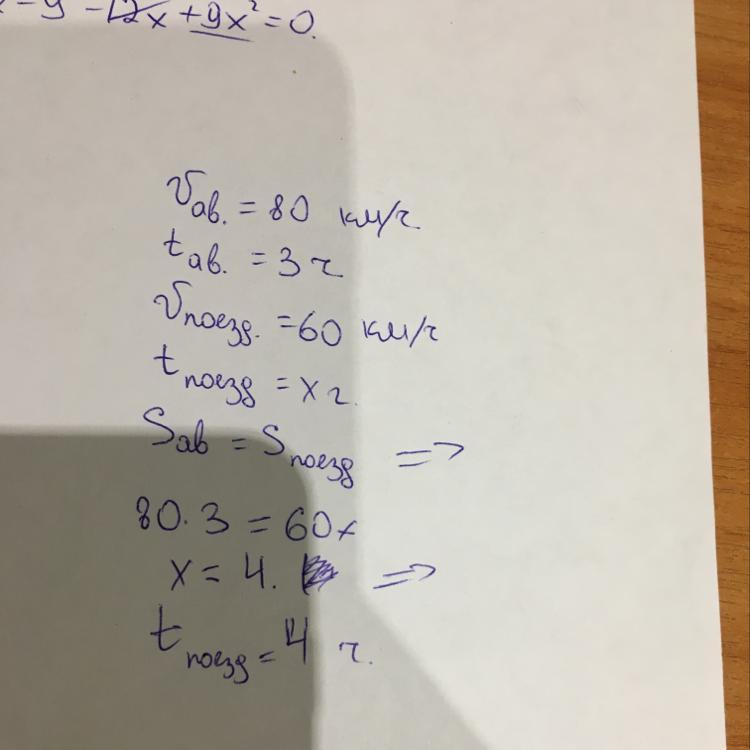 - 9 - 12x + 9x² = 0.
Vав. = 80 км/ч.
tав. = 3 ч
Vпоезд. = 60 км/ч
tпоезд = x ч.
Sав = Sпоезд =>
80 · 3 = 60x
x = 4. =>
tпоезд = 4 ч.